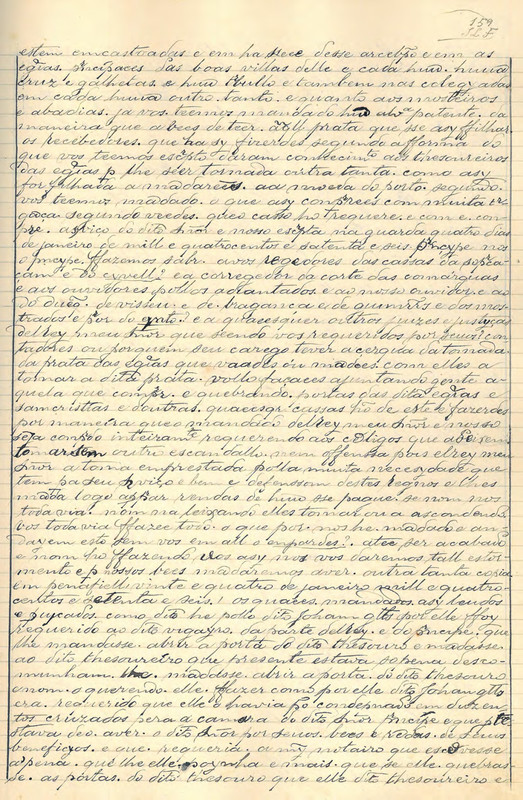 159
J.L.F
estem emcastoadas e em ha see desse arcebpo e em as
egias. principaces das boas villas delle e cada huũ. huũa
cruz e galhetas. e huũ tribullo e tambem nas colegyadas
em cada huũa outro. tanto. e quanto aos mosteiros
e abadias. ja vos. teemos mandado huũ alv. patente. da
maneira que avees de teer. a tall prata que se asy filhar
os recebedores. que ha sy fizerdes segundo a fforma do
que vos teemos escpto daram conhecimto aos thesoureiros
das egias p lhe seer tornada outra tanta. como asy
for filhada a mandarees. aa moeda do porto. segundo
vos teemos mãdado. o que asy comprees com muita
segundo veedes. que o casso ho requere. e com e. com
pre. a svico do dito Snor e nosso escpta na guarda quatro dias
de janeiro de mill e quatrocentos e satenta e seis. prncype nos
o prncype. fazemos sabr. a vos regedores das cassas da sopica
cam e do cyvell. e a corregedor da corte das comarquas
e aos ouvidores. pollos adiantados. e ao nosso ouvidor. e ao
do duco. de viseu. e. de braganca e de guimrẽs e dos mes
trados e por do qnto. e a quaeesquer outros juizes e justiças
delrey meu Snor que seendo vos requeridos por seus con
tadores ou por quem seu carego tever acerqua da tomada
da prata das egias que vaades ou mãdees. com elles a
tomar a dita prata. vollo façaees ajuntando gente a
quela que compr. e quebrando. portas das ditas egias e
samcristias e doutras. quaeesqr cassas hõ de este e fazerdes
por maneira que o mandado delrey meu Snor e nosso
seja comprido inteiramte requerendo aos cligos que a devem
tomar sem outro escandallo. nem offenssa pois elrey meu
Snor a toma emprestada polla muita necesydade que
tem pa seu svico e bem e defenssom destes regnos e lhes
mãda logo apar rendas de huũ sse paguẽ. se nom nos
toda via. nom na leixando elles tomar ou a ascondendo
vos toda via ffazee todo. o que por. nos he. mãdado e an
dar em este sem vos em all o empordes. atee. ser acabado
e nom ho ffazendo vos asy. nos vos daremos. tall estor
mento e p nossos bees mãdaremos aver. outra tanta contia
em pentifiell vinte e quatro de janeiro mill e quatro
centos e setenta e seis. os quaees. mandados. asy leudos
e pvycados. como dito he pollo dito joham glz. por elle ffoy
requerido ao dito vigayro. da parte delrey. e do prncipe. que
lhe mandasse. abrir a porta do thesouro e madasse
ao dito thesoureiro que presente estava so pena desco
munham. lhe. mãdasse. abrir a porta do dito thesouro
e nom. o querendo elle. ffazer como por elle dito joham glz
era. requerido que elle o havia p condempnado em duzen
tos cruzados pera a camara do dito Snor prncipe e que p
stava de. aver. o dito Snor por seuos. bees e redas. de seuus
beneficyos. e que. requeria. a my notairo que escvesse
a pena. que lhe elle. poynha e mais. que se elle. quebras
se. as portas do dito thesouro que elle dito thesoureiro e